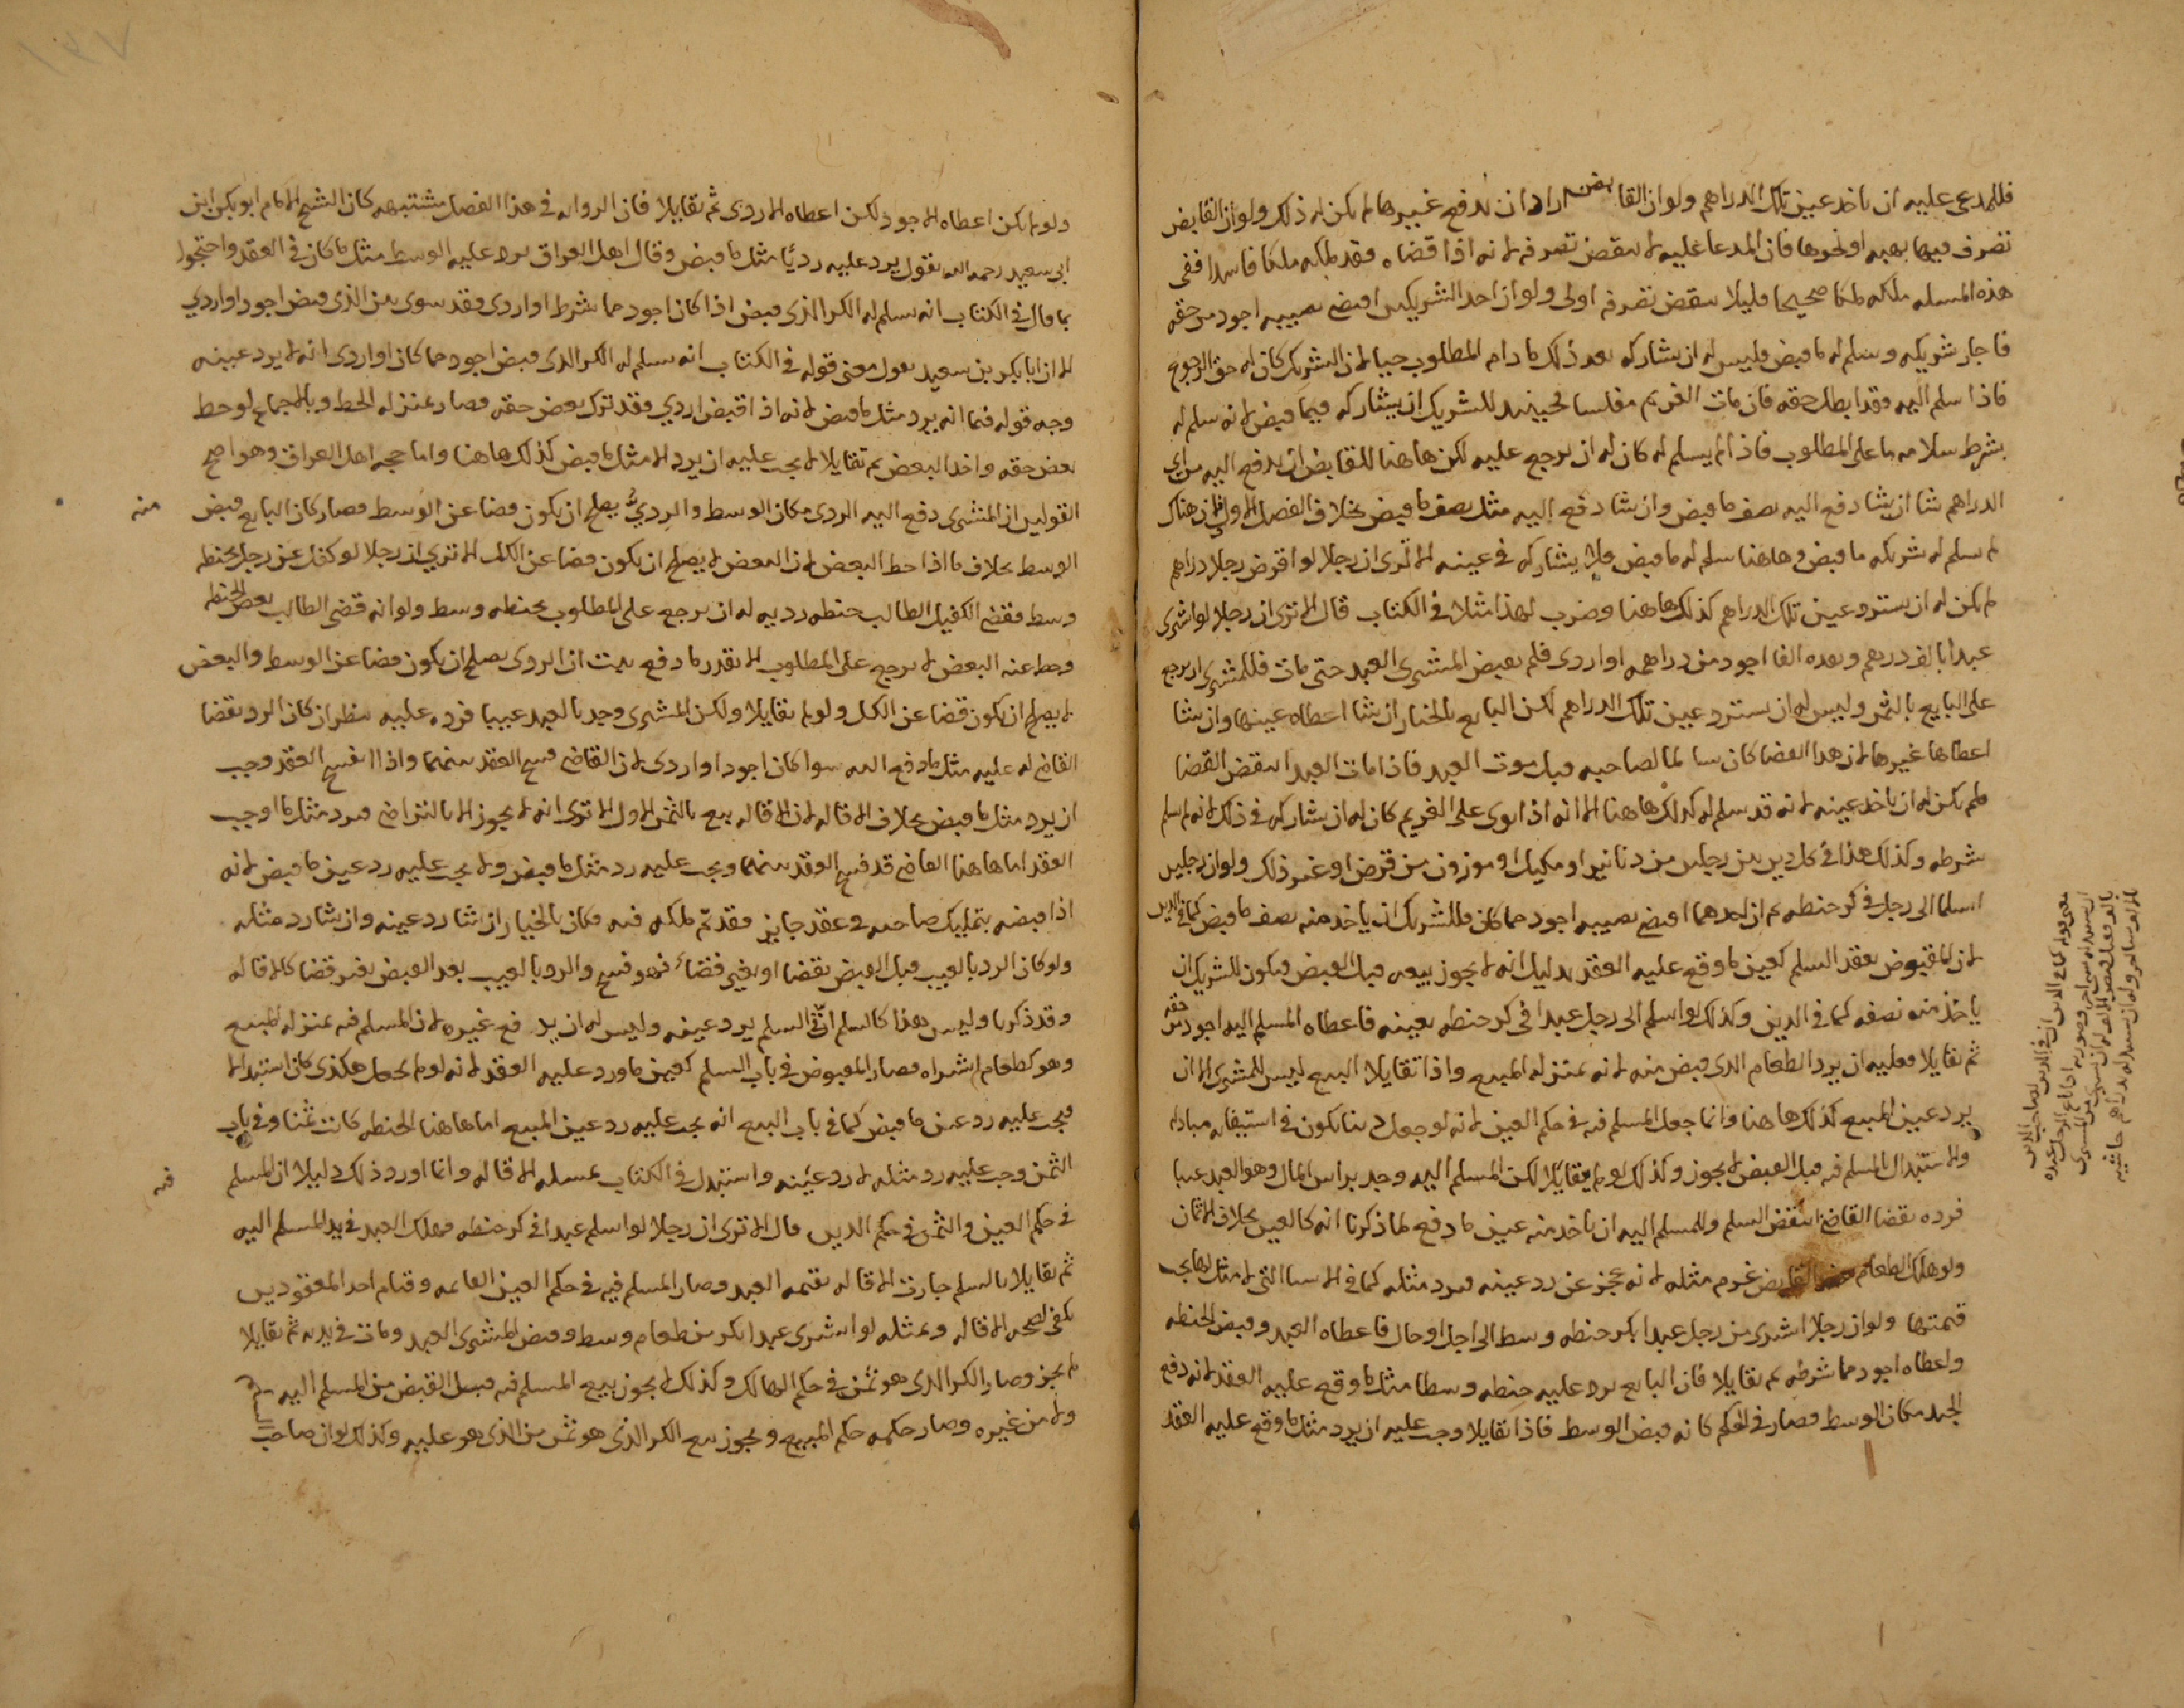 فللمدعى عليه ان ياخذ عين تلك الدراهم ولو ان القابض اراد ان يدفع غيرها لم يكن له ذلك ولو ان القابض
تصرف فيها بهبه او نحوها فان المدعا عليه لا ينقض تصرفه لانه اذا قضاه فقد ملكه ملكا فاسدا ففى
هذه المسله ملكه ملكا صحيحا فليلا ينقض تصرفه اولى ولو ان احد الشريكين اقتضى نصيبه اجود من حقه
فاجاز شريكه وسلم له ما قبض فليس له ان يشاركه بعد ذلك ما دام المطلوب حيا لان الشريك كان له حق الرجوع
فاذا سلم اليه فقد ابطل حقه فان مات الغريم مفلسا فحينيد للشريك ان يشاركه فيما قبض لانه سلم له
بشرط سلامه ما على المطلوب فاذا لم يسلم له كان له ان يرجع عليه لكن هاهنا للقابض ان يدفع اليه من اى
الدراهم شا ان شا دفع اليه نصف ما قبض وان شا دفع اليه مثل نصف ما قبض بخلاف الفصل الاول لان هناك
لم يسلم له شريكه ما قبض وهاهنا سلم له ما قبض ولا يشاركه فى عينه الا ترى ان رجلا لو اقرض رجلا دراهم
لم يكن له ان يسترد عين تلك الدراهم كذلك هاهنا وضرب لهذا مثلا فى الكتاب قال الا ترى ان رجلا لو اشترى
عبدا بالف درهم ونقده الفا اجود من دراهمه او اردى فلم يقبض المشترى العبد حتى مات فللمشترى ان يرجع
على البايع بالثمن وليس له ان يسترد عين تلك الدراهم لكن البايع بالخيار ان شا اعطاه عينها وان شا
اعطاها غيرها لان هذا القضا كان سالما لصاحبه قبل موت العبد فاذا مات العبد انتقض القضا
فلم يكن له ان ياخذ عينه لانه قد سلم له كذلك هاهنا الا انه اذا توى على الغريم كان له ان يشاركه فى ذلك لانه لم يسلم
شرطه وكذلك هذا فى كل دين بين رجلين من دنانير او مكيل او موزون من قرض او غير ذلك ولو ان رجلين
اسلما الى رجل فى كر حنطه ثم ان احدهما اقتضى نصيبه اجود مما كان فللشريك ان ياخذ منه نصف ما قبض كما فى الدين
لان المقبوض بعقد السلم كعين ما وقع عليه العقد بدليل انه لا يجوز بيعه قبل القبض فيكون للشريك ان
ياخذ منه نصفه كما فى الدين وكذلك لو اسلم الى رجل عبدا فى كر حنطه بعينه فاعطاه المسلم اليه اجود من حقه
ثم تقايلا فعليه ان يرد الطعام الذى قبض منه لانه بمنزله المبيع واذا تقايلا البيع ليس للمشترى الا ان
يرد عين المبيع كذلك هاهنا وانما جعل المسلم فيه فى حكم العين لانه لو جعل دينا يكون فى استيفايه مبادله
والاستبدال بالمسلم فيه قبل القبض لا يجوز وكذلك لو لم يتقايلا لكن المسلم اليه وجد براس المال وهو العبد عيبا
فرده بقضا القاضى انتقض السلم وللمسلم اليه ان ياخذ منه عين ما دفع لما ذكرنا انه كالعين بخلاف الاثمان
ولو هلك الطعام القابض غرم مثله لانه عجز عن رد عينه فيرد مثله كما فى الاشيا التى لا مثل لها يجب
قيمتها ولو ان رجلا اشترى من رجل عبدا بكر حنطه وسط الى اجل او حال فاعطاه العبد وقبض الحنطه
واعطاه اجود مما شرطه ثم تقايلا فان البايع يرد عليه حنطه وسطا مثل ما وقع عليه العقد لانه دفع
الجيد مكان الوسط فصار فى الحكم كانه قبض الوسط فاذا تقايلا وجب عليه ان يرد مثل ما وقع عليه العقد
ولو لم يكن اعطاه الاجود لكن اعطاه الاردى ثم تقايلا فان الروايه فى هذا الفصل مشتبهه كان الشيخ الامام ابو بكر ابن
ابى سعيد رحمه الله يقول يرد عليه رديًا مثل ما قبض وقال اهل العراق يرد عليه الوسط مثل ما كان فى العقد واحتجوا
بما قال فى الكتاب انه سلم له الكر الذى قبض اذا كان اجود مما شرط او اردى فقد سوى بين الذى قبض اجود او اردي
الا ان ابا بكر بن سعيد يقول معنى قوله فى الكتاب انه سلم له الكر الذى قبض اجود مما كان او اردى انه لا يرد عينه
وجه قوله فيما انه يرد مثل ما قبض لانه اذا قبض اردي فقد ترك بعض حقه فصار بمنزله الحط وبالاجماع لو حط
بعض حقه واخذ البعض ثم تقايلا لا يجب عليه ان يرد الا مثل ما قبض كذلك هاهنا واما حجه اهل العراق وهو اصح
القولين ان المشترى دفع اليه الردى مكان الوسط والرديُّ يصلح ان يكون قضا عن الوسط فصار كان البايع قبض منه
الوسط بخلاف ما اذا حط البعض لان البعض لا يصلح ان يكون قضا عن الكل الا تري ان رجلا لو كفل عن رجل بحنطه
وسط فقضى الكفيل الطالب حنطه رديه له ان يرجع على المطلوب بحنطه وسط ولو انه قضى الطالب بعض الحنطه
وحط عنه البعض لا يرجع على المطلوب الا بقدر ما دفع يثبت ان الردى يصلح ان يكون قضا عن الوسط والبعض
لا يصلح ان يكون قضا عن الكل ولو لم يتقايلا ولكن المشترى وجد بالعبد عيبا فرده عليه ينظر ان كان الرد بقضا
القاضى له عليه مثل ما دفع اليه سوا كان اجود او اردى لان القاضى فسخ العقد بينهما واذا انفسخ العقد وجب
ان يرد مثل ما قبض بخلاف الاقاله لان الاقاله بيع بالثمن الاول الا ترى انه لا يجوز الا بالتراضى فيرد مثل ما اوجب
العقد اما هاهنا القاضى قد فسخ العقد بينهما ويجب عليه رد مثل ما قبض ولا يجب عليه رد عين ما قبض لانه
اذا قبضه بتمليك صاحبه فى عقد جايز فقد تم ملكه فيه فكان بالخيار ان شا رد عينه وان شا رد مثله
ولو كان الرد بالعيب قبل القبض بقضا او بغير قضاء فهو فسخ والرد بالعيب بعد القبض بغير قضا كالاقاله
وقد ذكرنا وليس هذا كالسلم ان فى السلم يرد عينه وليس له ان يدفع غيره لان المسلم فيه بمنزله المبيع
وهو كطعام اشتراه فصار المقبوض فى باب السلم كعين ما ورد عليه العقد لانه لو لم يجعل هكذى كان استبدالا
فيجب عليه رد عين ما قبض كما فى باب البيع انه يجب عليه رد عين المبيع اما هاهنا الحنطه كانت ثمنا وفى باب
الثمن وجب عليه رد مثله لا رد عينه واستدل فى الكتاب بمسله الاقاله وانما اورد ذلك دليلا ان المسلم فيه
فى حكم العين والثمن فى حكم الدين قال الا ترى ان رجلا لو اسلم عبدا فى كر حنطه فهلك العبد فى يد المسلم اليه
ثم تقايلا السلم جازت الاقاله بقيمه العبد وصار المسلم فيه فى حكم العين القايمه وقيام احد المعقودين
يكفى لصحه الاقاله وبمثله لو اشترى عبدا بكر من طعام وسط وقبض المشترى العبد ومات فى يديه ثم تقايلا
لم يجز وصار الكر الذى هو ثمن فى حكم الهالك وكذلك لا يجوز بيع المسلم فيه قبل القبض من المسلم اليه
ولا من غيره وصار حكمه حكم المبيع ويجوز بيع الكر الذى هو ثمن من الذى هو عليه وكذلك لو ان صاحب السلم